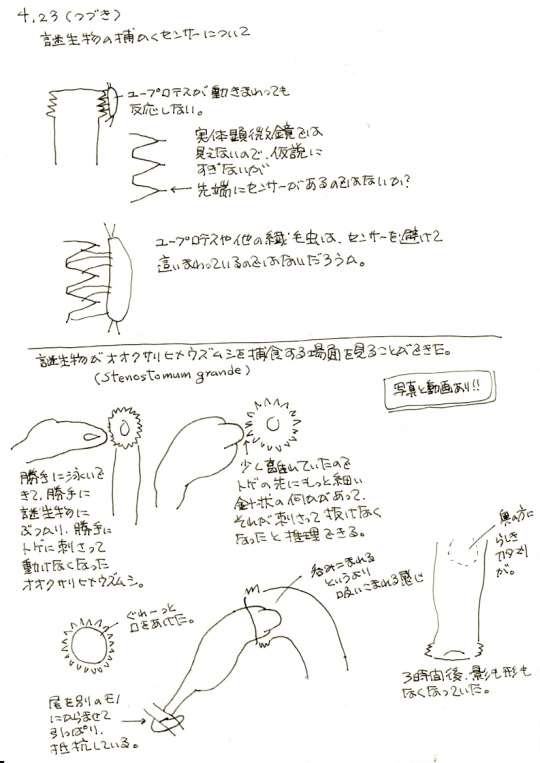 4.23(つづき)
謎生物の捕かくセンサーについて
ユープロテスが動きまわっても
反応しない。
実体顕微鏡では
見えないので、仮説に
すぎないが
先端にセンサーがあるのではないか?
ユープロテスや他の繊毛虫は、センサーを避けて
這いまわっているのではないだろうか。
謎生物がオオクサリヒメウズムシを捕食する場面を見ることができた。
(Stenostomum grande)
写真と動画あり!!
勝手に泳いで
きて、勝手に
謎生物に
ぶつかり、勝手に
トゲに刺さって
動けなくなった
オオクサリヒメウズムシ。
少し離れていたので
トゲの先にもっと細い
針状の何かがあって、
それが刺さって抜けなく
なったと推理できる。
奥の方に
らしき
カタマリ
が。
ぐわーっと
口をあけた。
呑みこまれる
というより
吸いこまれる感じ
尾を別のモノ
にからませて
引っぱり、
抵抗している。
3時間後、影も形も
なくなっていた。